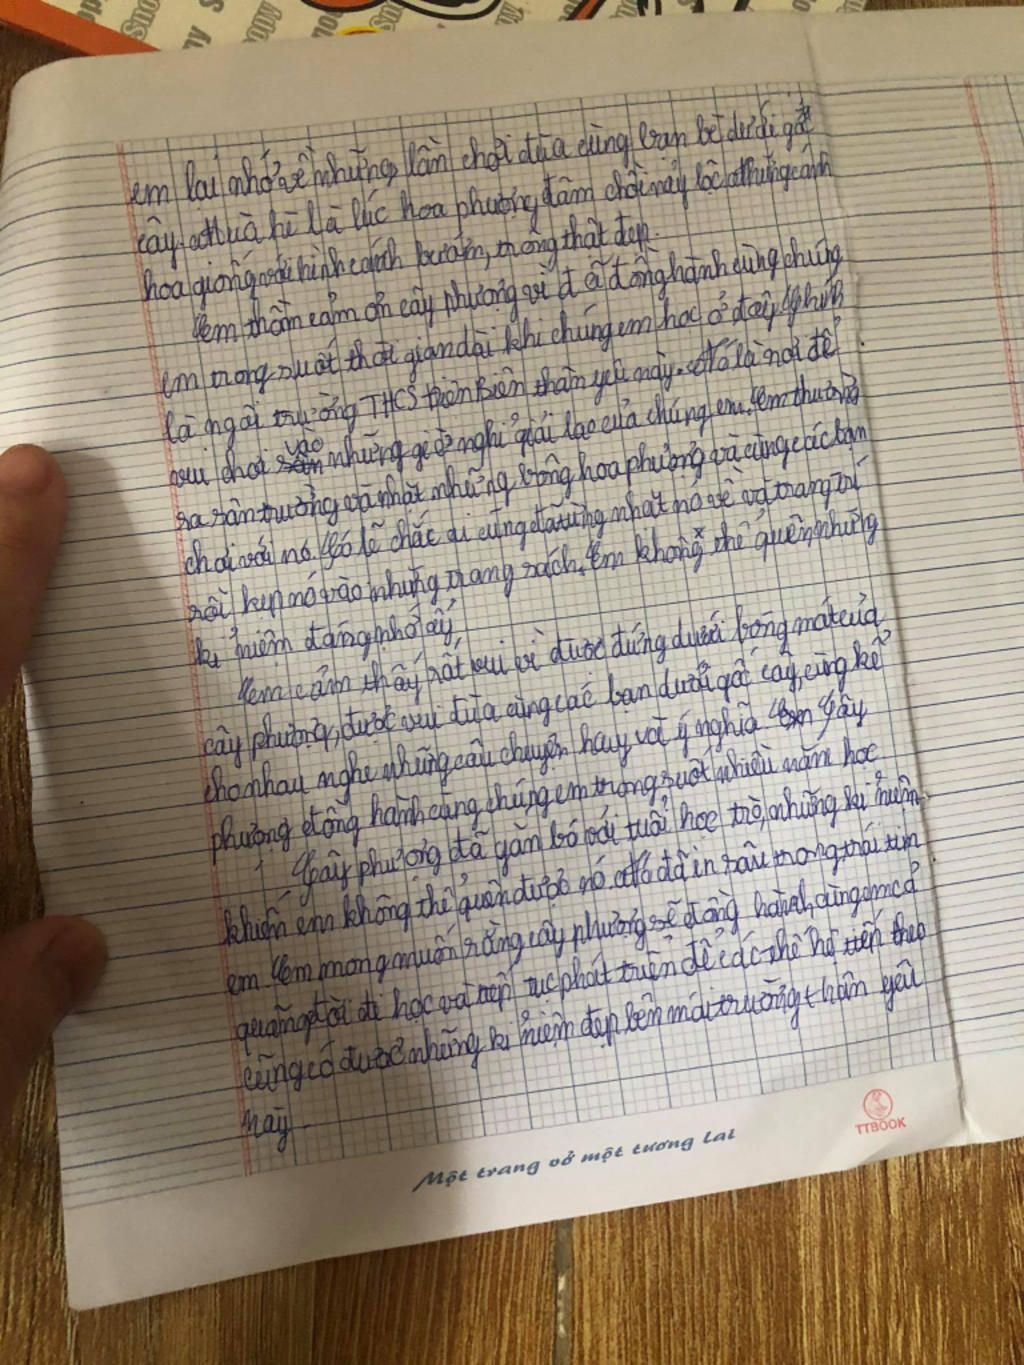 Snoopy
em lại nhớ về những lần chơi đùa cùng bạn bè dưới gốc
cây. Mùa hè là lúc hoa phượng đâm chồi nảy lộc. Những cánh
hoa giống với hình cánh bướm, trông thật đẹp.
Em thầm cảm ơn cây phượng vì đã đồng hành cùng chúng
em trong suốt thời gian dài khi chúng em học ở đây
là ngôi trường THCS Điện Biên thân yêu này. Nó là nơi để
vui chơi vào những giờ nghỉ giải lao của chúng em. Em thường
ra sân trường và nhặt những bông hoa phượng và cùng các bạn
chơi với nó. Có lẽ chắc ai cũng đã từng nhặt nó về và trang trí
rồi kẹp nó vào những trang sách. Em không thể quên những
kỉ niệm đáng nhớ ấy.
Em cảm thấy rất vui vì được đứng dưới bóng mát của
cây phượng, được vui đùa cùng các bạn dưới gốc cây, cùng kể
cho nhau nghe những câu chuyện hay và ý nghĩa. Cây
phượng đồng hành cùng chúng em trong suốt nhiều năm học.
Cây phượng đã gắn bó với tuổi học trò, những kỉ niệm
khiến em không thể quên được nó. Nó đã in sâu trong trái tim
em. Em mong muốn rằng cây phượng sẽ đồng hành cùng em cả
quãng đời đi học và tiếp tục phát triển để các thế hệ tiếp theo
cũng có được những kỉ niệm đẹp bên mái trường thân yêu
này.
Một trang vở một tương lai
TTBOOK